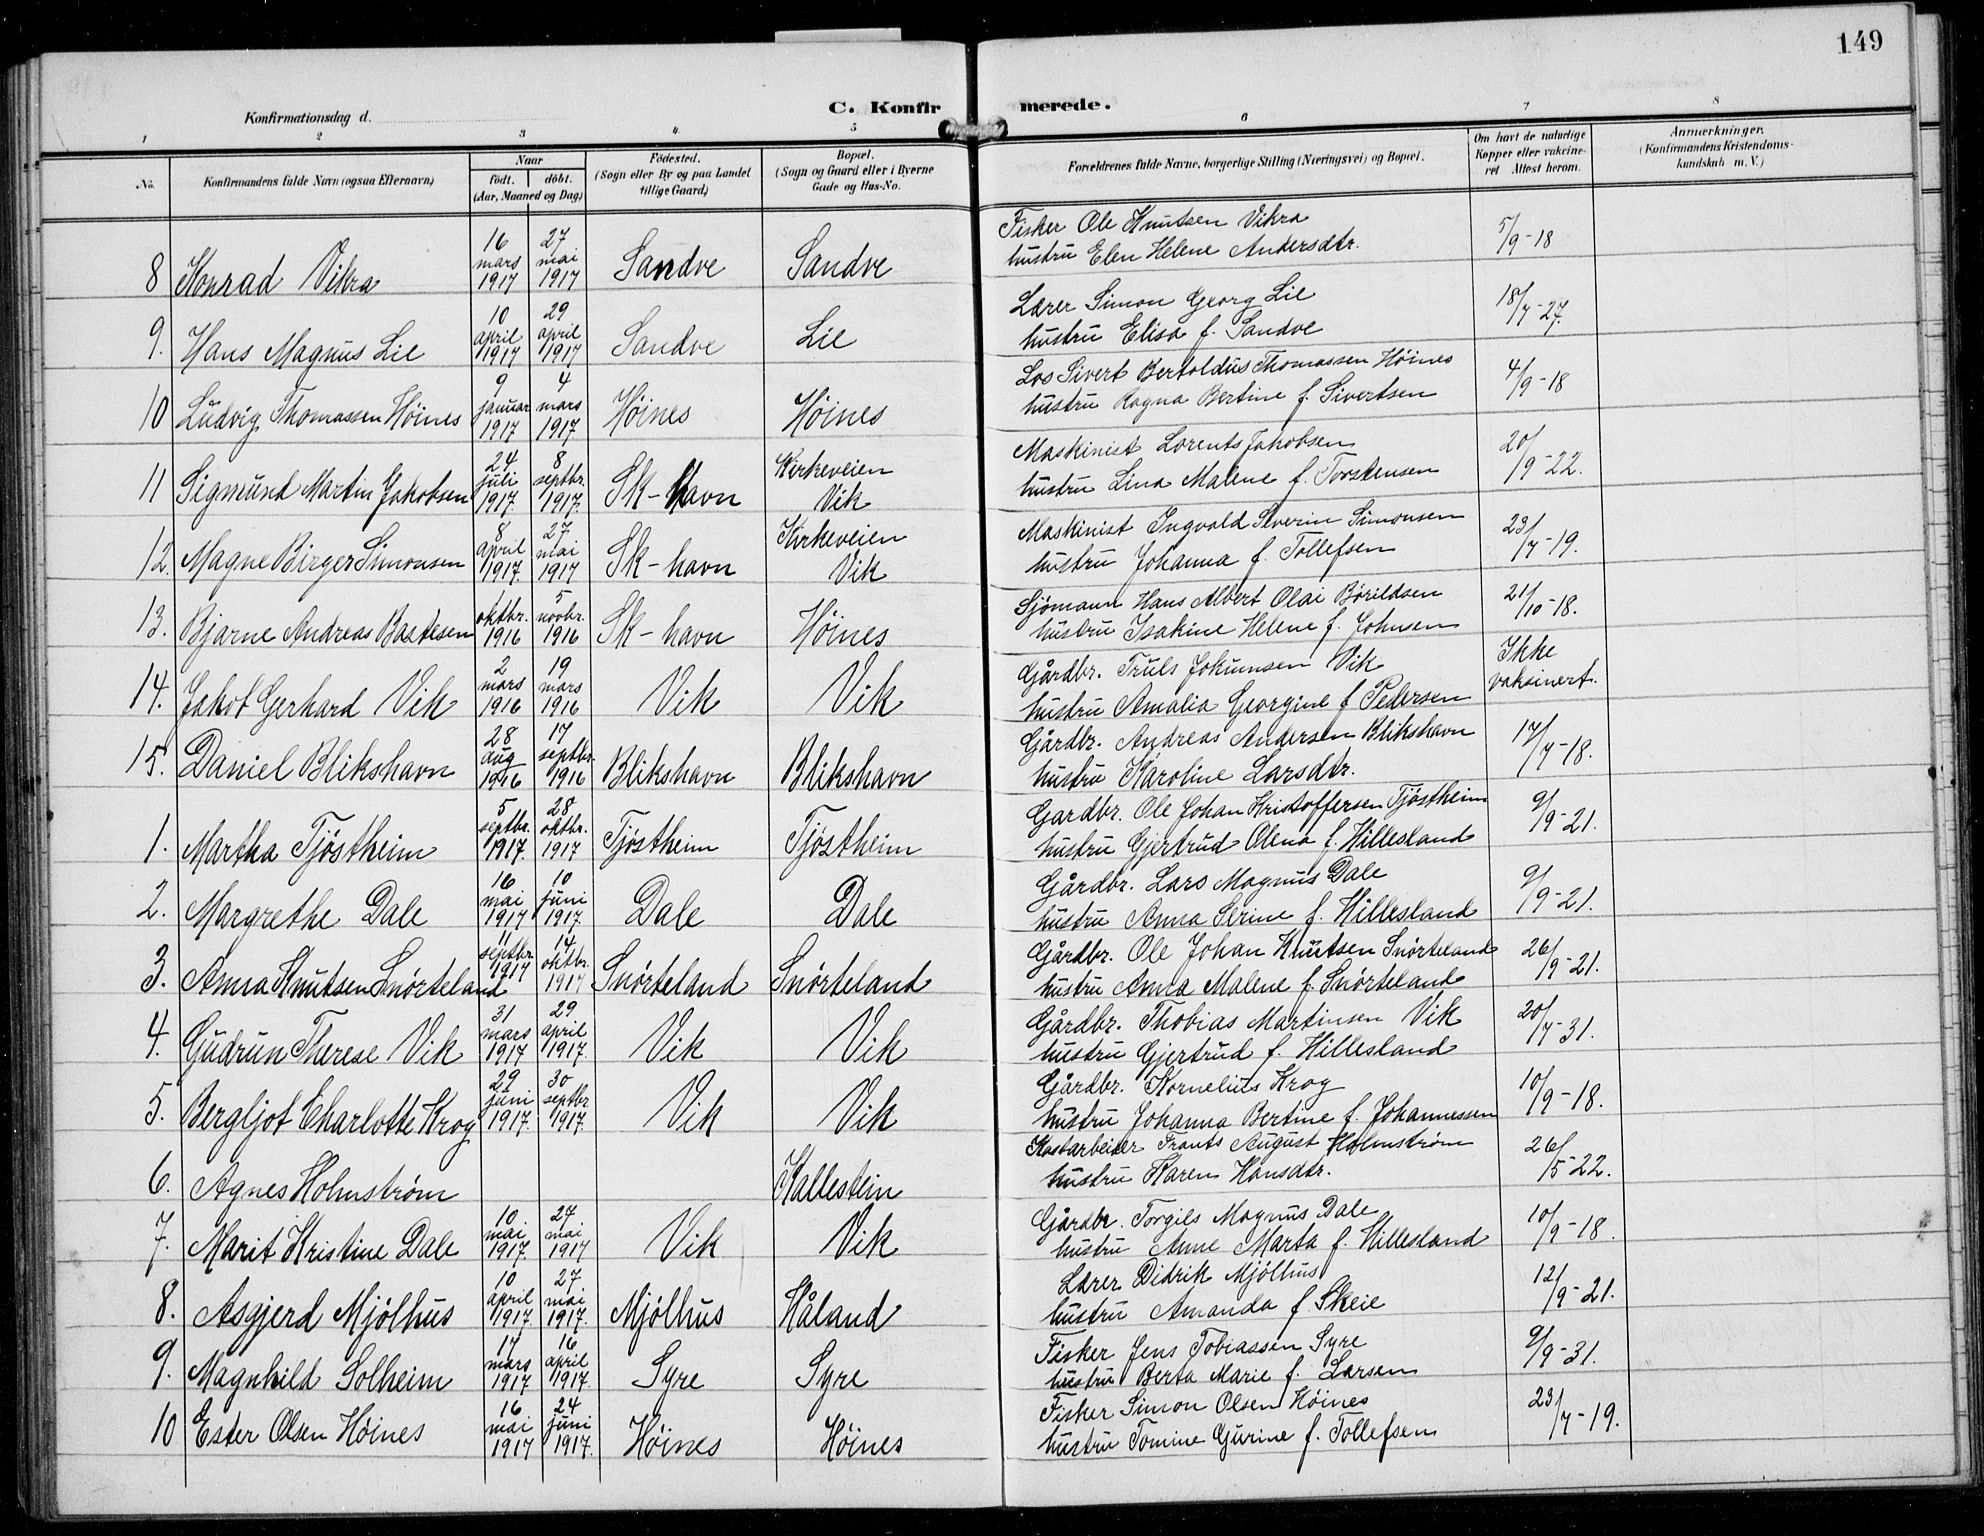 149
C. Konfirmerede.
Konfirmationsdag d.
1 2 3 4 5 6 7 8
No. | Konfirmandens fulde Navn (ogsaa Efternavn) | Naar født. døbt. (Aar, Maaned og Dag) | Fødested. (Sogn eller By og paa Landet tillige Gaard) | Bopæl. (Sogn og Gaard eller i Byerne Gade og Hus-No. | Forældrenes fulde Navne, borgerlige Stilling (Næringsvei) og Bopæl. | Om havt de naturlige Kopper eller vakcineret Attest herom. | Anmærkninger. (Konfirmandens Kristendomskundskab m. V.)
8 Konrad Vikra | 16 mars 1917 | 27 mai 1917 | Sandve | Sandve | Fisker Ole Knutsen Vikra
hustru Elen Helene Andersdtr. | 5/9-18
9. Hans Magnus Lie | 10 april 1917 | 29 april 1917 | Sandve | Lie | Lærer Simon Georg Lie
hustru Elisa f. Sandve | 18/7-27.
10 Ludvig Thomassen Höines | 9 januar 1917 | 4 mars 1917 | Höines | Höines | Los Sivert Bertoldus Thomassen Höines
hustru Ragna Bertine f. Sivertsen | 4/9-18
11 Sigmund Martin Jakobsen | 24 juli 1917. | 8 septbr. 1917. | Sk-havn | Kirkeveien Vik | Maskinist Lorents Jakobsen
hustru Lina Malene f. Torstensen | 20/9-22.
12. Magne Birger Simonsen | 8 april 1917. | 27 mai 1917 | Sk-havn | Kirkeveien Vik | Maskinist Ingvald Severin Simonsen
hustru Johanna f. Tollefsen | 23/7-19.
13. Bjarne Andreas Bastesen | oktbr. 1916 | 5 novbr. 1916 | Sk-havn | Höines | Sjömann Hans Albert Olai Börildsen
hustru Isakine Helene f. Johnsen | 21/10-18.
14. Jakob Gerhard Vik | 2 mars 1916 | 19 mars 1916 | Vik | Vik | Gårdbr. Truls Jokumsen Vik
hustru Amalia Georgine f Pedersen | Ikke vaksinert.
15. Daniel Blikshavn | 28 aug 1916 | 17 septbr. 1916 | Blikshavn | Blikshavn | Gårdbr. Andreas Andersen Blikshavn
hustru Karoline Larsdtr. | 17/7-18.
1. Martha Tjöstheim | 5 septbr. 1917. | 28 oktbr. 1917 | Tjöstheim | Tjöstheim | Gardbr. Ole Johan Kristoffersen Tjöstheim
hustru Gjertrud Olena f. Hillesland | 9/9-21.
2. Margrethe Dale | 16 mai 1917 | 10 juni 1917. | Dale | Dale | Gårdbr. Lars Magnus Dale
hustru Anna Serine f. Hillesland | 9/9-21.
3. Anna Knutsen Snörteland | 11 septbr. 1917 | 14 oktbr. 1917 | Snörteland | Snörteland | Gårdbr. Ole Johan Knutsen Snörteland
hustru Anna Malene f. Snörteland | 26/9-21.
4. Gudrun Therese Vik | 31 mars 1917 | 29 april 1917. | Vik | Vik | Gårdbr. Thobias Martinsen Vik
hustru Gjertrud f. Hillesland | 20/7-31.
5. Bergljot Charlotte Krog | 29 juni 1917. | 30 septbr 1917. | Vik | Vik | Gårdbr. Kornelius Krog
hustru Johanna Bertine f. Johannessen | 10/9-18.
6. Agnes Holmström | Kallestein | Frants August Holmström
hustru Karen Hansdtr. | 26/5-22.
7. Marit Kristine Dale | 10 mai 1917. | 24 mai 1917 | Vik | Vik | Gårdbr. Torgils Magnus Dale
hustru Anne Marta f. Hillesland | 10/9-18.
8. Asgjerd Mjölhus | 10 april 1917. | 27 mai 1917. | Mjölhus | Håland | Lærer Didrik Mjölhus
hustru Amanda f Skeie | 12/9-21.
9. Magnhild Solheim | 17 mars 1917 | 16 april 1917. | Syre | Syre | Fisker Jens Tobiassen Syre
hustru Berta Marie f. Larsen | 9/9-31.
10 Ester Olsen Höines | 16 mai 1917 | 24 juni 1917. | Höines | Höines | Fisker Simon Olsen Höines
hustru Tomine Gurine f. Tollefsen | 23/7-19.